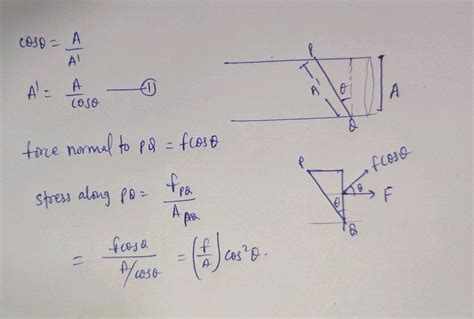 cosθ = A/A'
A' = A/cosθ —— ①
force normal to PQ = fcosθ
stress along PQ = f_PQ/A_PQ
= fcosθ/A/cosθ = (f/A) cos²θ.
P
A'
θ
A
Q
P
fcosθ
θ
F
θ
Q